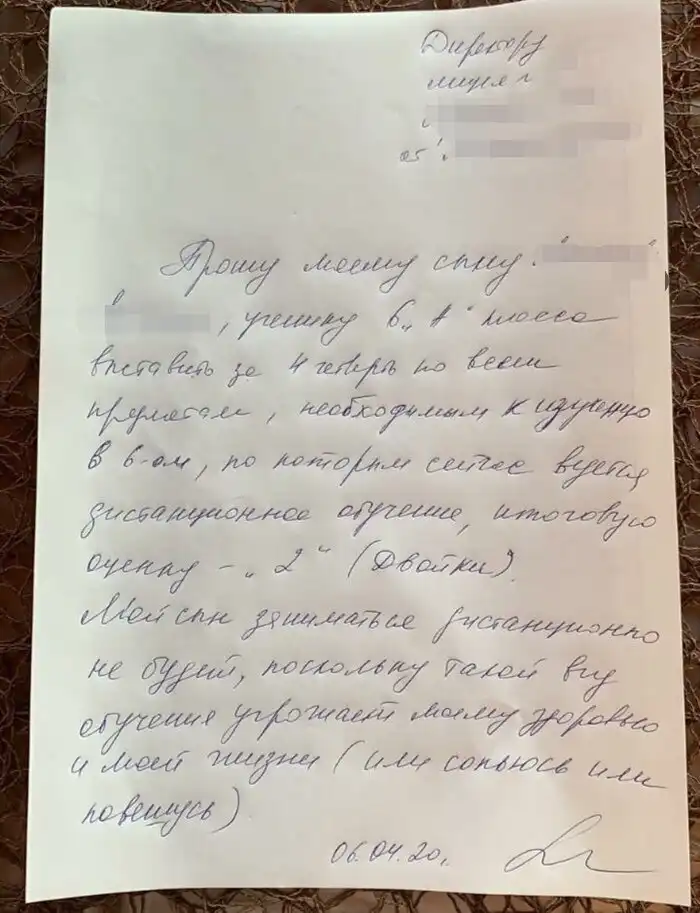 Директору
лицея
от
Прошу моему сыну
, ученику 6 „А" класса
выставить за 4 четверть по всем
предметам, необходимым к изучению
в 6-ом, по которым сейчас ведется
дистанционное обучение, итоговую
оценку - „2" (Двойки).
Мой сын заниматься дистанционно
не будет, поскольку такой вид
обучения угрожает моему здоровью
и моей жизни (или сопьюсь или
повешусь)
06.04.20.